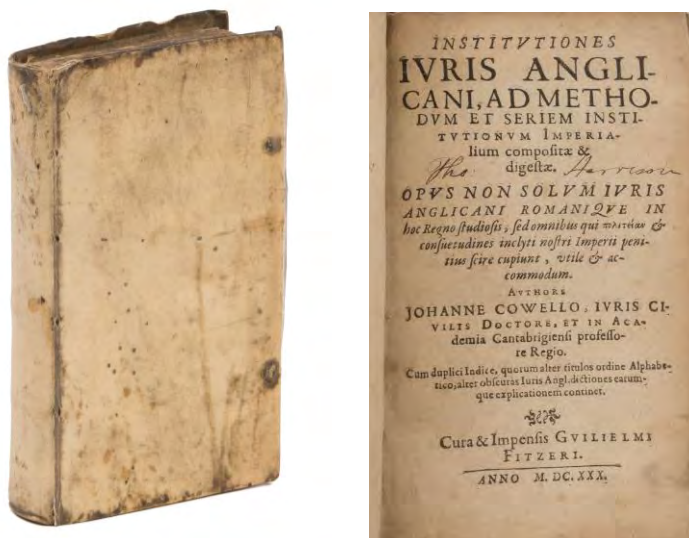 INSTITVTIONES
IVRIS ANGLI-
CANI, AD METHO-
DVM ET SERIEM INSTI-
TVTIONVM IMPERIA-
lium compositæ &
digestæ.
Tho Harrison
OPVS NON SOLVM IVRIS
ANGLICANI ROMANIQVE IN
hoc Regno ſtudioſis, ſed omnibus qui &
conſuetudines inclyti noſtri Imperii peni-
tius ſcire cupiunt, vtile & ac-
commodum.
AVTHORE
JOHANNE COWELLO, IVRIS CI-
VILIS DOCTORE, ET IN ACA-
demia Cantabrigienſi profeſſo-
re Regio.
Cum duplici Indice, quorum alter titulos ordine Alphabe-
tico, alter obſcuras Iuris Angl. dictiones earum-
que explicationem continet.
Cura & Impenſis GVILIELMI
FITZERI.
ANNO M. DC. XXX.